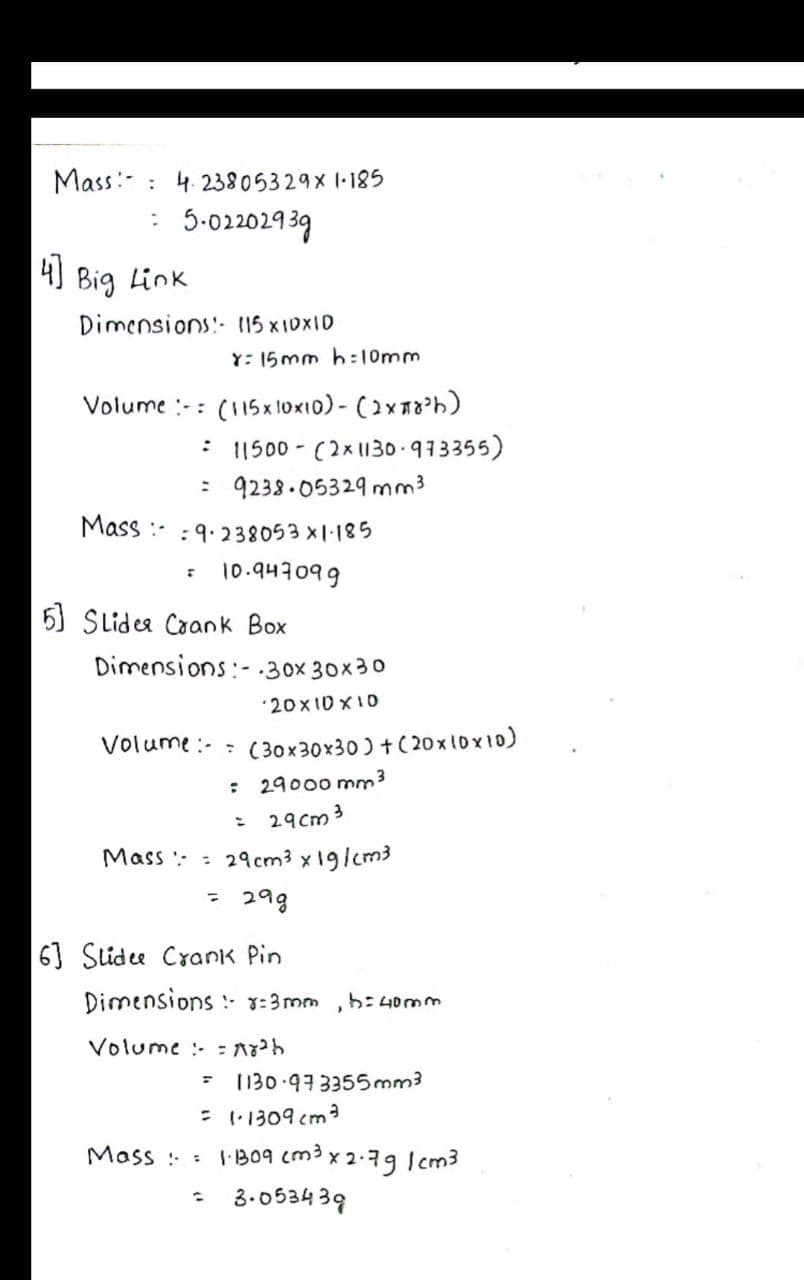 Mass:- : 4.23805329 x 1.185
= 5.0220293g
4] Big Link
Dimensions:- 115 x10x10
r= 15mm h=10mm
Volume :- = (115x10x10) - (2xπr²h)
= 11500 - (2x1130.973355)
= 9238.05329 mm³
Mass :- = 9.238053 x1.185
= 10.947099
5] Slider Crank Box
Dimensions :- .30x30x30
.20x10x10
Volume :- = (30x30x30) + (20x10x10)
= 29000 mm³
= 29cm³
Mass :- = 29cm³ x 1g/cm³
= 29g
6] Slider Crank Pin
Dimensions :- r=3mm , h=40mm
Volume :- = πr²h
= 1130.973355mm³
= 1.1309 cm³
Mass :- = 1.1309 cm³ x 2.7g /cm³
= 3.05343g